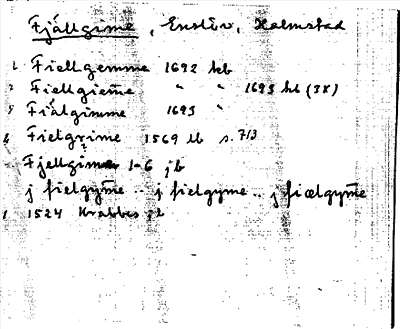 Fjällgime, Enslöv, Halmstad
Fiellgemme 1692 hb
Fiellgiem̅e " " 1693 hb (3x)
Fiälgimme 1693 "
Fielgrime 1569 lb s. 713
Fjellgime 1-6 jb
j fielgym̅e .. j fielgyme .. j fiælgym̅e
1524 Krabbes jb